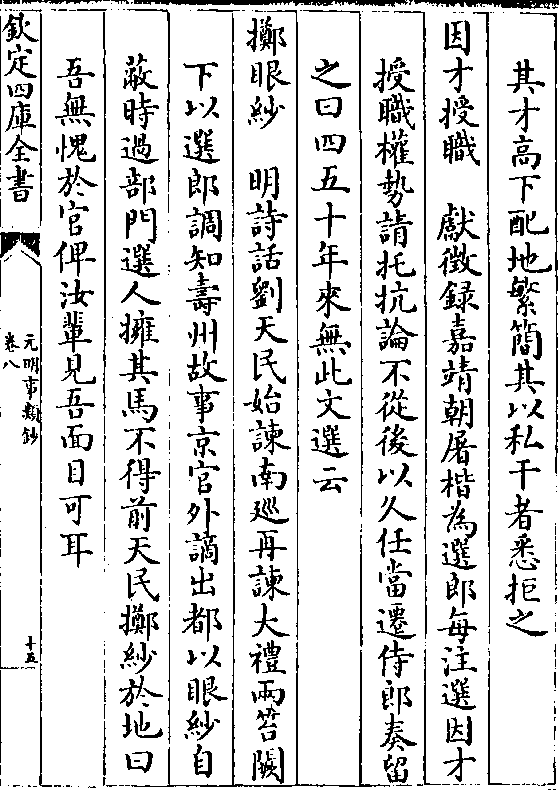 其才高下配地繁簡其以私干者悉拒之
因才授職　獻徵録嘉靖朝屠楷為選郎每注選因才
授職權勢請托抗論不從後以久任當遷侍郎奏留
之曰四五十年來無此文選云
擲眼紗　明詩話劉天民始諫南廵再諫大禮兩笞闕
下以選郎調知壽州故事京官外謫出都以眼紗自
蔽時過部門選人擁其馬不得前天民擲紗於地曰
吾無愧於官俾汝輩見吾面目可耳
欽定四庫全書
元明事類鈔
卷八
十五